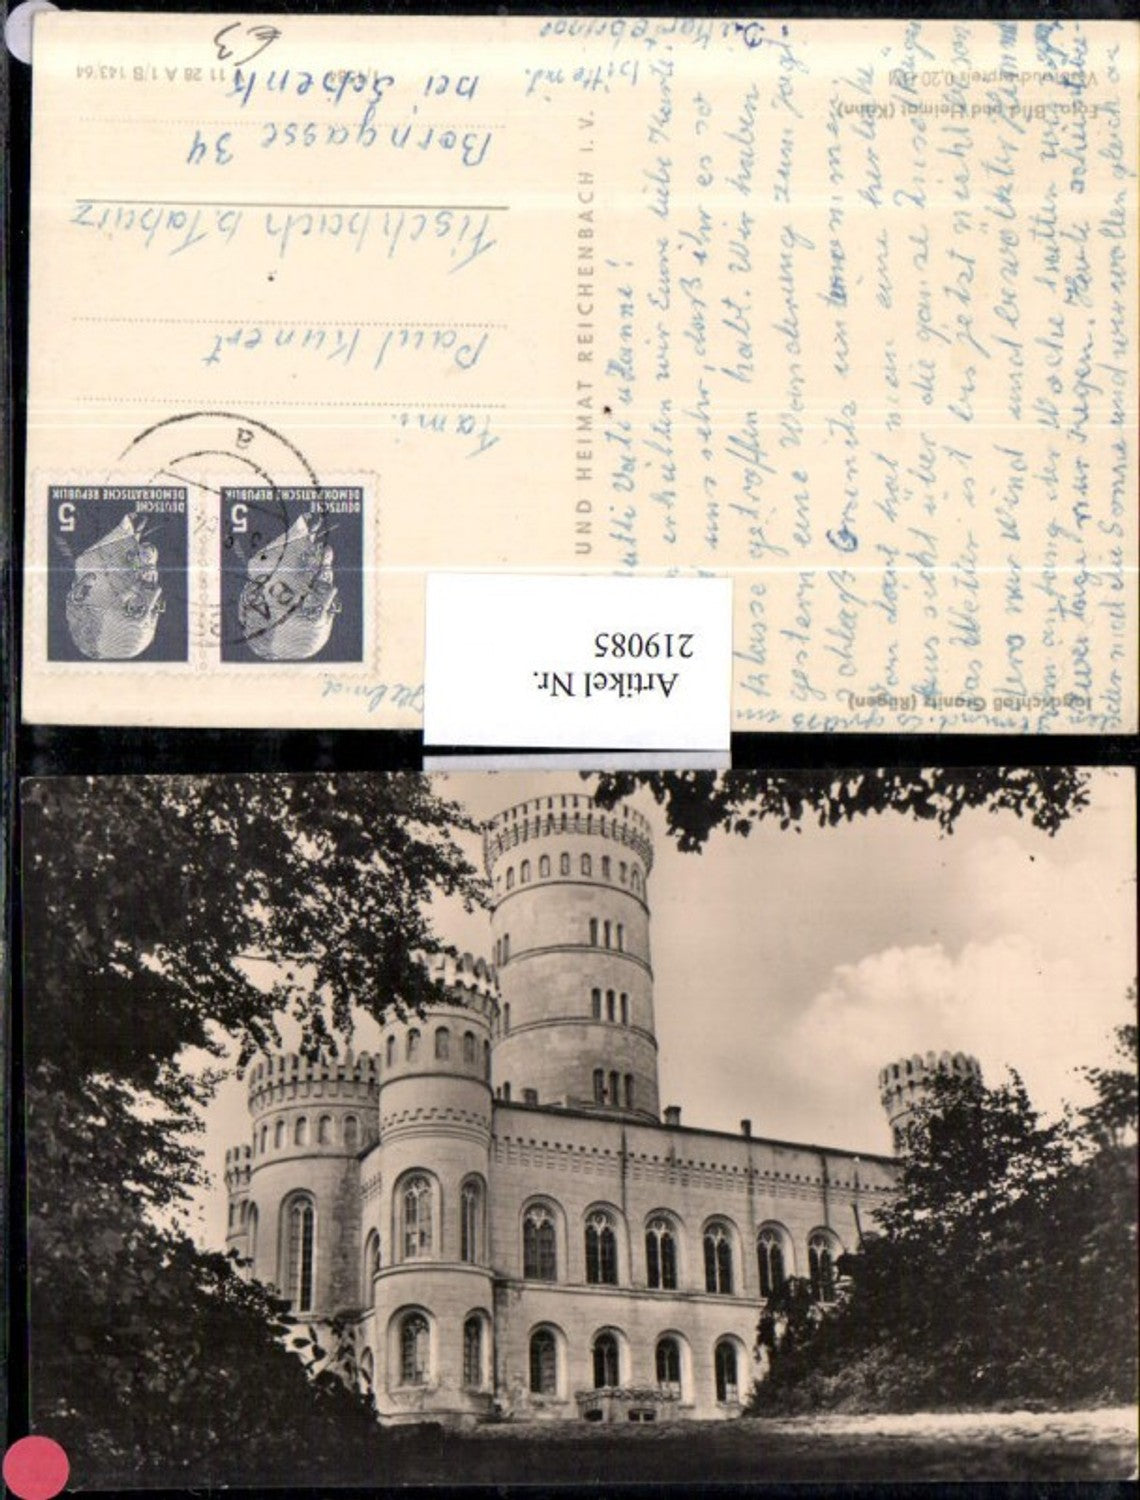 Jagdschloß Granitz (Rügen)
Mutti Vati u. Hanne!
erhielten wir Eure liebe Karte
uns sehr, daß ihr es so
getroffen habt. Wir haben
gestern eine Wanderung zum Jagd-
schloß Granitz unternommen.
Von dort hat man eine herrliche
Aussicht über die ganze Insel Rügen
Das Wetter ist bis jetzt nicht besonders
nur Wind und bewölkter Himmel
Am Anfang der Woche hatten wir sogar
zwei Tage nur Regen. Heute scheint wie-
der mal die Sonne und wir wollen gleich an
Helmut
UND HEIMAT REICHENBACH I. V.
Foto: Bild und Heimat (Kühn)
Verbraucherpreis 0,20 DM
V 11 28 A 1/B 143/64
DEUTSCHE
DEMOKRATISCHE REPUBLIK
5
DEUTSCHE
DEMOKRATISCHE REPUBLIK
5
a
Fam.
Paul Kunert
Fischbach b. Tabarz
Borngasse 34
bei Schenk
bitte
€3
Artikel Nr.
219085